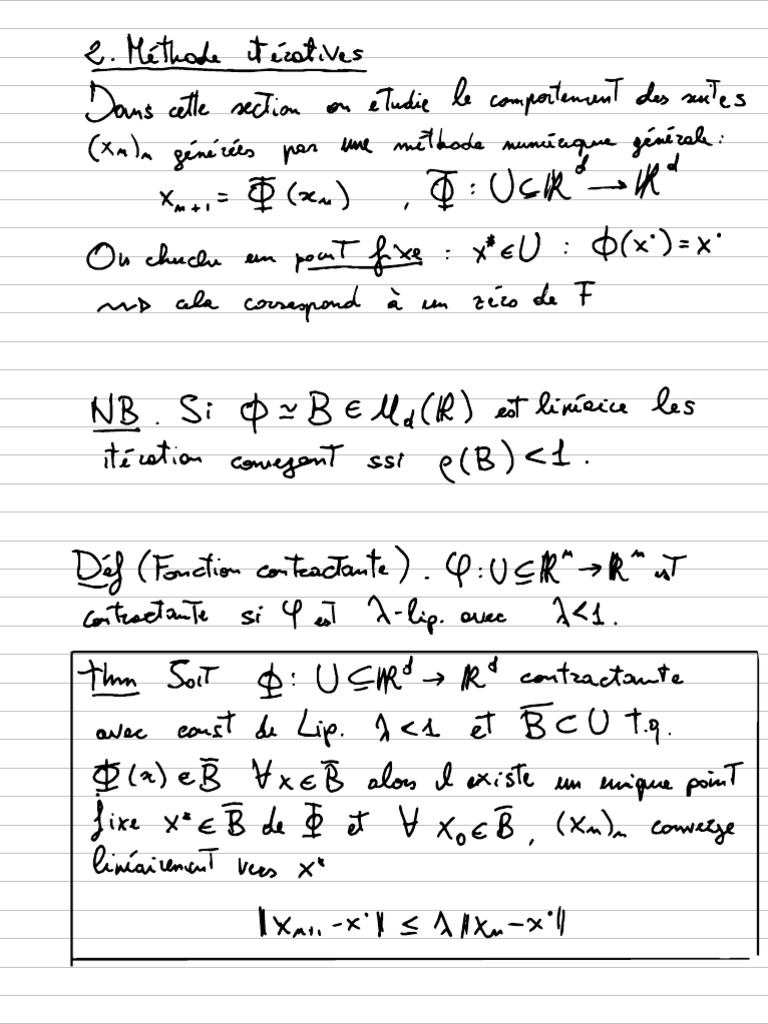 2. Méthode itératives
Dans cette section on étudie le comportement des suites
(xₙ)ₙ générées par une méthode numérique générale:
xₙ₊₁ = Φ(xₙ) , Φ : U ⊆ ℝᵈ → ℝᵈ
On cherche un point fixe : x* ∈ U : Φ(x*) = x*
⇝ cela correspond à un zéro de F
NB. Si Φ ≃ B ∈ M_d(ℝ) est linéaire les
itération convergent ssi ρ(B) < 1.
Déf (Fonction contractante). φ : U ⊆ ℝⁿ → ℝⁿ est
contractante si φ est λ-lip. avec λ<1.
thm Soit Φ : U ⊆ ℝᵈ → ℝᵈ contractante
avec const de Lip. λ<1 et B̅ ⊂ U t.q.
Φ(x) ∈ B̅ ∀x ∈ B̅ alors il existe un unique point
fixe x* ∈ B̅ de Φ et ∀ x₀ ∈ B̅, (xₙ)ₙ converge
linéairement vers x*
‖xₙ₊₁ - x*‖ ≤ λ ‖xₙ - x*‖